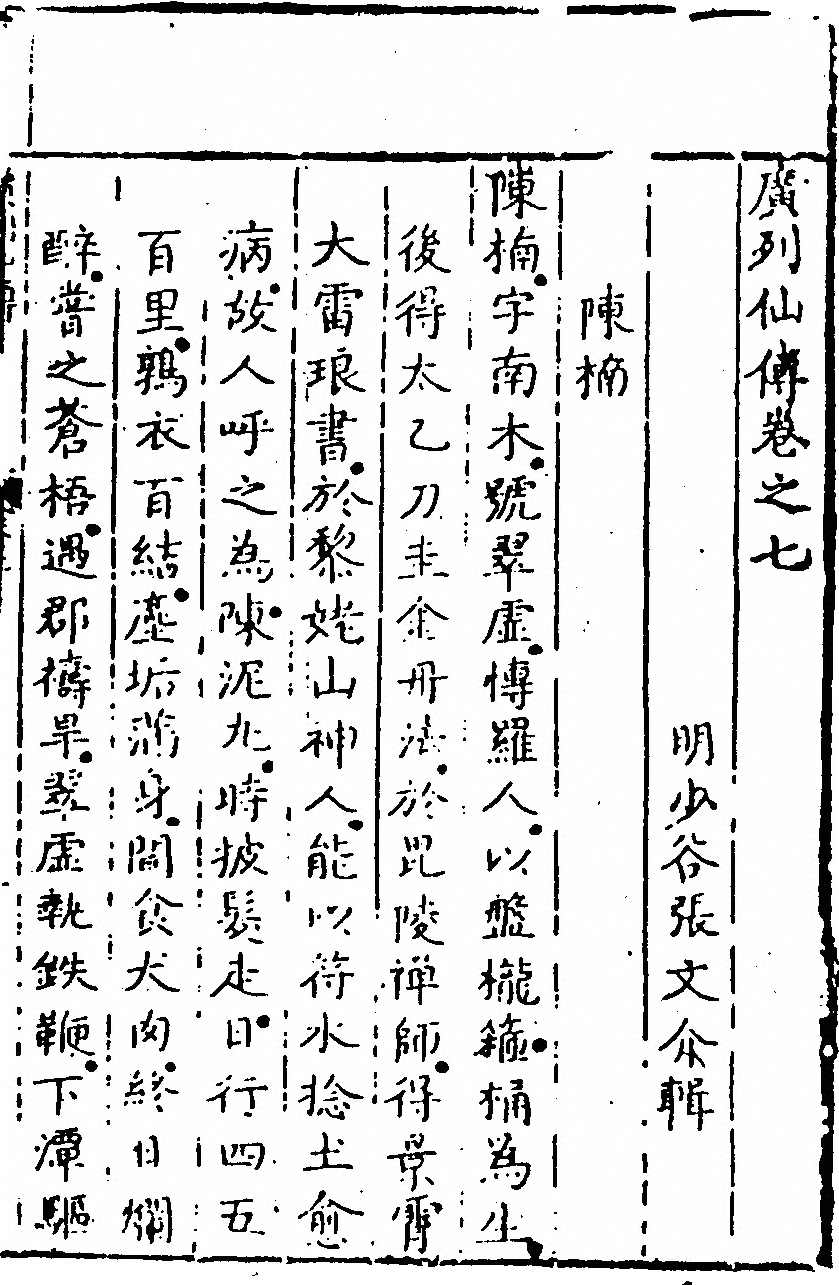 廣列仙傳卷之七
明少谷張文介輯
陳楠
陳楠字南木號翠虛愽羅人以盤櫳箍桶為生
後得太乙刀圭金丹法於毘陵禅師得景霄
大雷琅書於黎姥山神人能以符水捻土愈
病故人呼之為陳泥丸時披髮走日行四五
百里鶉衣百結塵垢滿身閒食犬肉終日爛
醉嘗之蒼梧遇郡禱旱翠虛執鉄鞭下潭驅